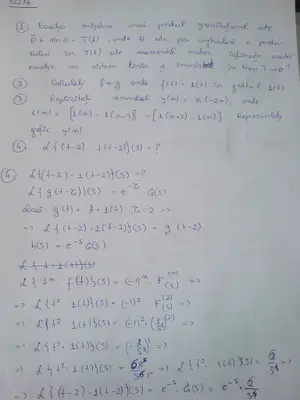 ① Ecuația mișcării unui pendul gravitațional este
θ̈ + sin θ = T(t), unde θ este poz. unghiulară a pendu-
lului iar T(t) este momentul motor.
ecuație un sistem liniar și invariant în timp T→θ?
② Calculați f * g unde f(t) = 1(t) și g(t) = t·1(t)
③ Explicitați semnalul y(n) = x(-2n), unde
x(n) = [1(n) - 1(n-3)] - [1(n+2) - 1(n)]. Reprezentați
grafic y(n)
④ L{(t-2)·1(t-2)}(s) = ?
④ L{(t-2)·1(t-2)}(s) = ?
L{g(t-τ)}(s) = e^-τ G(s)
Dar g(t) = t·1(t), τ=2 ⇒
⇒ L{(t-2)·1(t-2)}(s) = g(t-2)
h(s) = e^-s G(s)
L{t·1(t)}(s)
L{t^n · f(t)}(s) = (-1)^n · F^(n)(s) ⇒
⇒ L{t²·1(t)}(s) = (-1)² · F^(2)(s) ⇒
⇒ L{t² 1(t)}(s) = (-1)² ·
⇒ L{t²·1(t)}(s) =
⇒ L{t²·1(t)}(s) = ⇒ L{t²·1(t)}(s) =
⇒ L{(t-2)·1(t-2)}(s) = e^-s · G(s) = e^-s ·